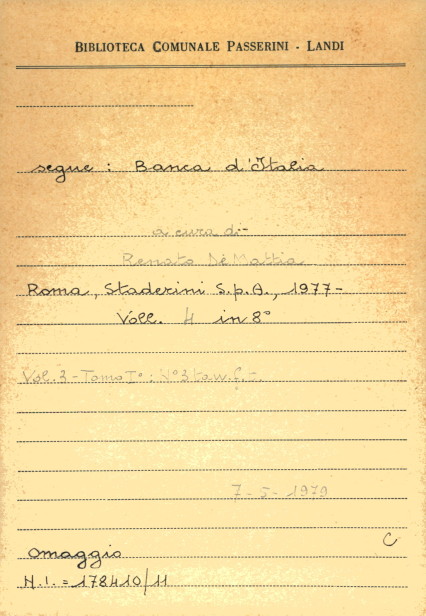 BIBLIOTECA COMUNALE PASSERINI - LANDI
segue : Banca d'Italia
a cura di -
Renato De Mattia
Roma, Staderini S.p.A., 1977-
Voll. 4 in 8°
Vol. 3 - Tomo I° : N° 3
7-5-1979
C
omaggio
N.I. = 178410/11